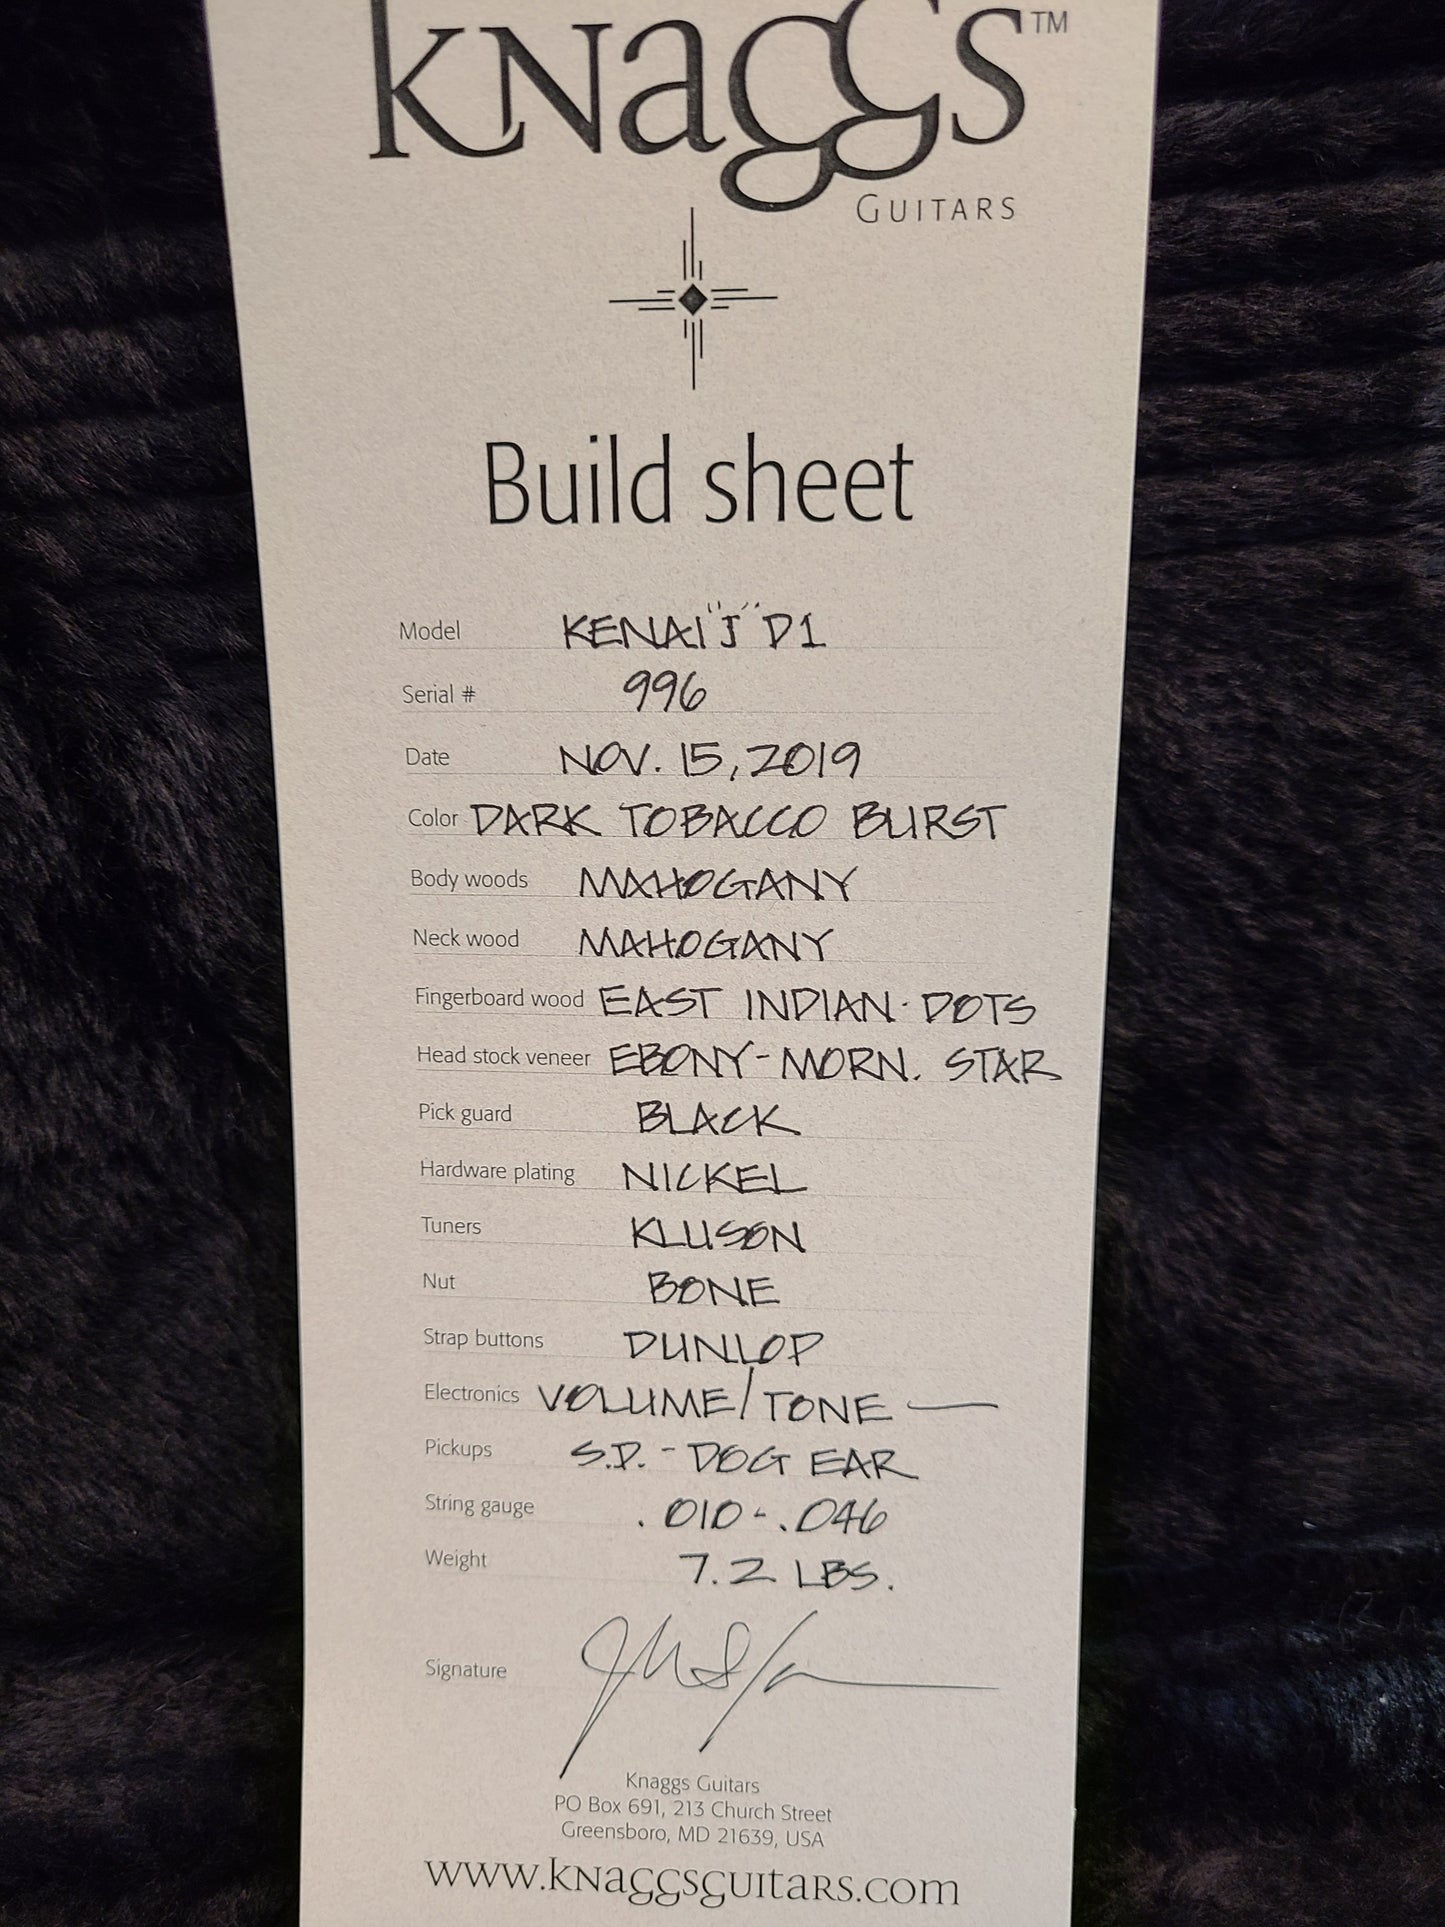 KNAGGS™
GUITARS
Build sheet
Model KENAI "J" D1
Serial # 996
Date NOV. 15, 2019
Color DARK TOBACCO BURST
Body woods MAHOGANY
Neck wood MAHOGANY
Fingerboard wood EAST INDIAN - DOTS
Head stock veneer EBONY - MORN. STAR
Pick guard BLACK
Hardware plating NICKEL
Tuners KLUSON
Nut BONE
Strap buttons DUNLOP
Electronics VOLUME/TONE —
Pickups S.D. - DOG EAR
String gauge .010 - .046
Weight 7.2 LBS.
Signature
Knaggs Guitars
PO Box 691, 213 Church Street
Greensboro, MD 21639, USA
www.knaggsguitars.com